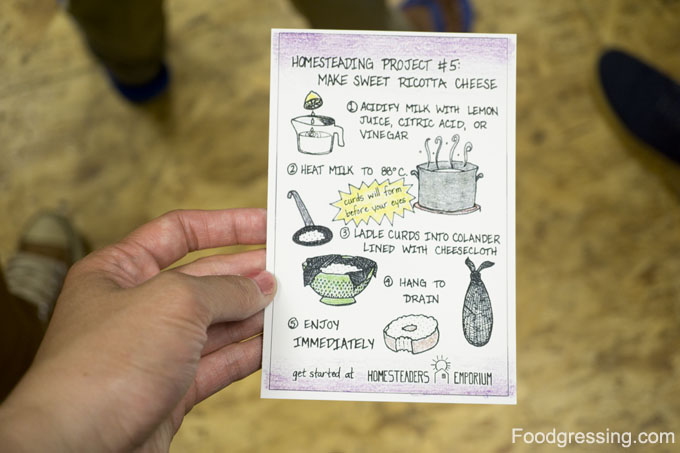 HOMESTEADING PROJECT #5:
MAKE SWEET RICOTTA CHEESE
① ACIDIFY MILK WITH LEMON
JUICE, CITRIC ACID, OR
VINEGAR
② HEAT MILK TO 88°C.
curds will form
before your eyes
③ LADLE CURDS INTO COLANDER
LINED WITH CHEESECLOTH
④ HANG TO
DRAIN
⑤ ENJOY
IMMEDIATELY
get started at HOMESTEADERS EMPORIUM
Foodgressing.com